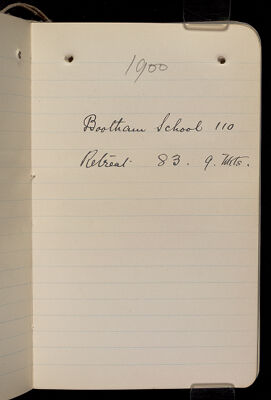 1900
Bootham School 110
Retreat 83. 9. Mts.